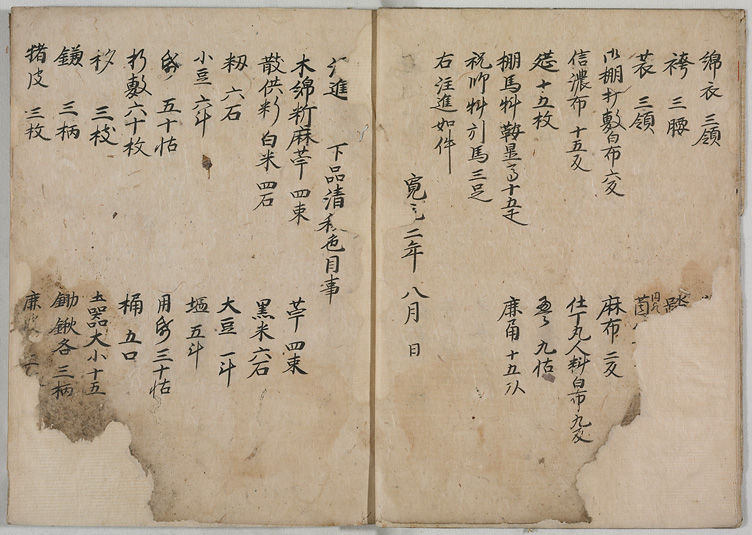 綿衣 三領
袴 三腰
裳 三領
棚打敷白布六反
麻布 二反
信濃布 十五反
仕丁九人料白布九反
十五枚
九帖
棚馬料鞍 十五疋
十五
祝師料引馬三疋
右注進如件
寛 二年 八月 日
注進 下品清 色目事
木綿 麻苧 四束
苧 四束
散供料 白米 四石
黒米 六石
籾 六石
大豆 一斗
小豆 六斗
塩 五斗
紙 五十帖
用紙 三十帖
折敷六十枚
桶 五口
三枝
土器大小十五
鎌 三柄
鋤鍬各三柄
猪皮 三枚